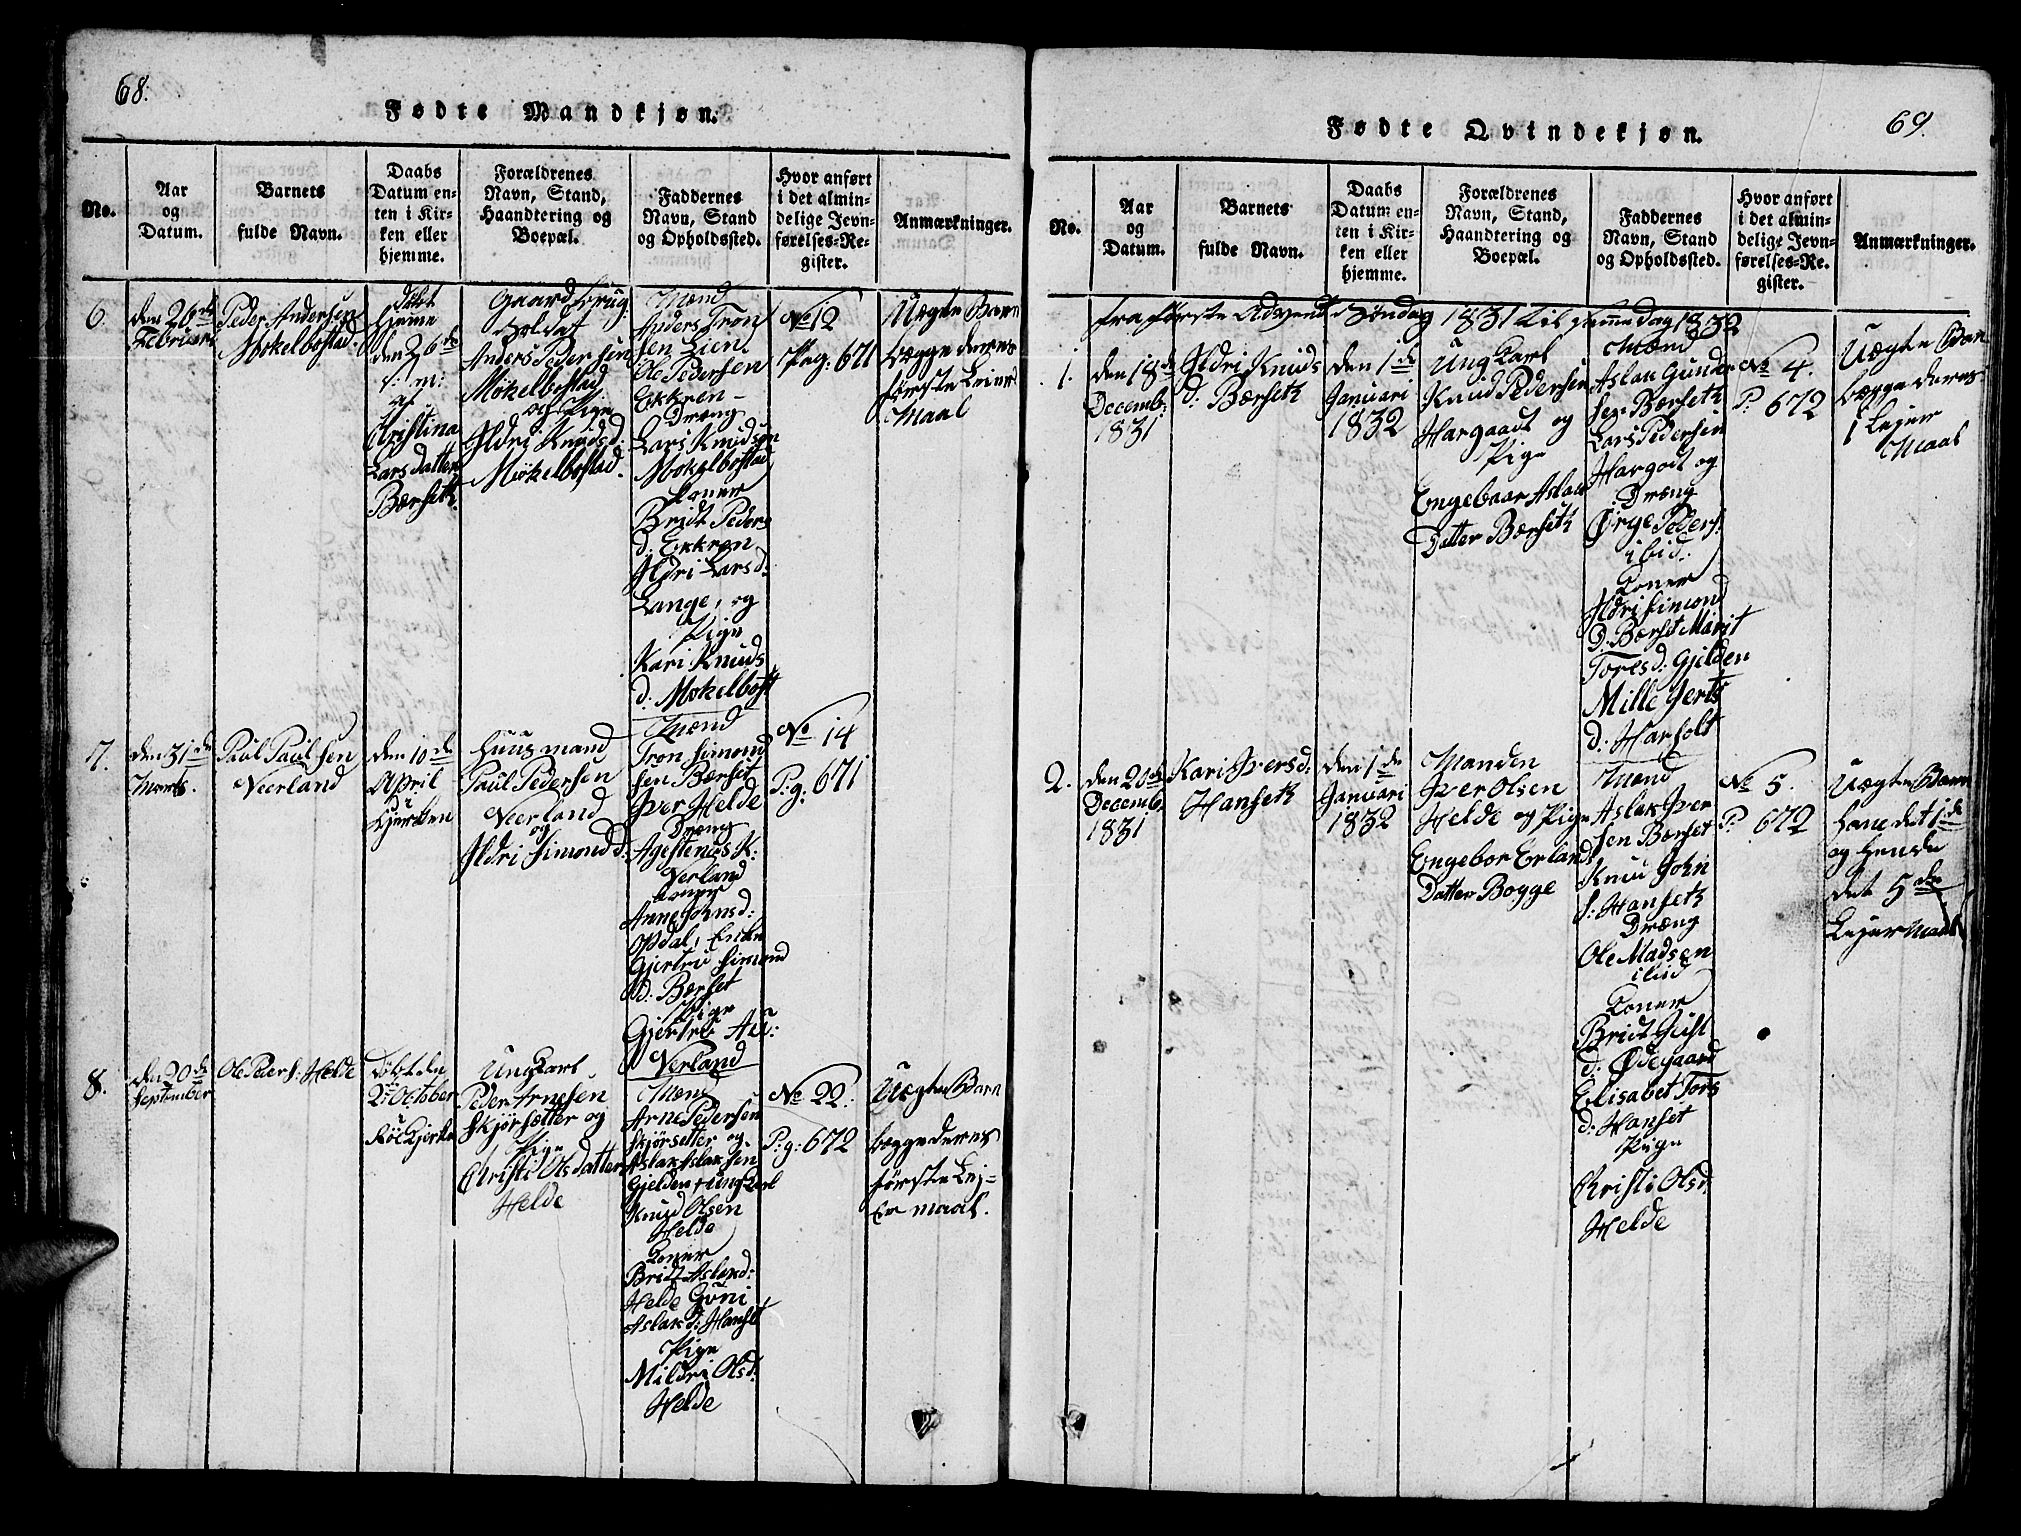 68.
Fødte Mandkjøn.
No.
Aar
og
Datum.
Barnets
fulde Navn.
Daabs
Datum en-
ten i Kir-
ken eller
hjemme.
Forældrenes
Navn, Stand,
Haandtering og
Boepæl.
Faddernes
Navn, Stand
og Opholdssted.
Hvor anført
i det almin-
delige Jevn-
førelses-Re-
gister.
Anmærkninger.
6.
den 26de
Februar
Peder Andersen
Mokelbostad.
Døbt
Hjemme
den 26de
s: m:
af
Christina
Lars datter
Bærseth.
Gaard brug:
Soldat
Anders Pedersen
Mökelbostad
og Pige
Ildri Knudsd:
Mökelbostad.
Mænd
Anders Tron
sen Lien
Ole Pedersen
Ekkren
Dræng
Lars Knudsøn
Mokelbostad
Koner
Bridt Peders
d: Ekkren
Ildri Larsd:
Lange, og
Pige
Kari Knuds
d: Mokelbost
No 12
Pag: 671
Uægte Barn
begge deres
første Leiers
Maal
7.
den 31de
Marts.
Paul Paulsen
Neerland
den 10de
April
i
Kjerken
Huusmand
Paul Pedersen
Neerland
og
Ildri Simond d:
Mænd
Tron Simond
sen Bærset
Iver Helde
Dræng
Agestenus K:
Nerland
Koner
Anne Johnsd:
Opdal, Enke
Gjertru Simond
d: Bærset
Pige
Gjertru Au:
Nerland
No 14
P:g: 671
8.
den 20de
September
Ole Peders: Helde
Döbt den
2de October
i
Röe Kjerke
Ung Karl
Peder Arnesen
Skjörsætter og
Pige
Christi Olsdatter
Helde
Mænd
Arne Pedersen
Skjörsetter og
Aslak Aslaksen
Gjelden, Ung Karl
Knud Olsen
Helde
Koner
Bridt Aslakd:
Helde Guni
Aslak d: Hanset
Pige
Mildri Olsd:
Helde
No 22.
P:g: 672
Uægte Barn
begge deres
förste Lej-
er maal.
69.
Fødte Qvindekjøn.
No.
Aar
og
Datum.
Barnets
fulde Navn.
Daabs
Datum en-
ten i Kir-
ken eller
hjemme.
Forældrenes
Navn, Stand,
Haandtering og
Boepæl.
Faddernes
Navn, Stand
og Opholdssted.
Hvor anført
i det almin-
delige Jevn-
førelses-Re-
gister.
Anmærkninger.
fra første Advent Søndag 1831 til samme dag 1832
1.
den 18de
Decemb:
1831
Ildri Knuds
d: Bærseth
den 1de
Januari
1832
Ung Karl
Knud Pedersen
Hargaadt og
Pige
Engebaar Aslak
Datter Bærseth
Mænd
Aslak Gunder
sen Bærseth
Lars Pedersen
Hargodt og
Dræng
Ørge Peders:
ibid:
Koner
Ildri Simond
D: Bærset Marit
Tores d: Gjelden
Mille Gerts
d: Harholt
No 4.
P: 672
Uægte Barn
begge deres
1 Lejer
Maal
2.
den 20de
Decemb:
1831
Kari Iversd:
Hanseth
den 1de
Januari
1832
Manden
Iver Olsen
Helde og Pige
Engebor Erland
Datter Bogge
Mænd
Aslak Iver
sen Bærset
Knud John
s: Hanseth
Dræng
Ole Madsen
ibid
Koner
Bridt Gusl
d: Ødegaard
Elisabet Tors
d: Hanset
Pige
Christi Olsd:
Helde
No 5.
P: 672
Uægte Barn
hans det 1de
og hendes
det 5de
Lejermaal